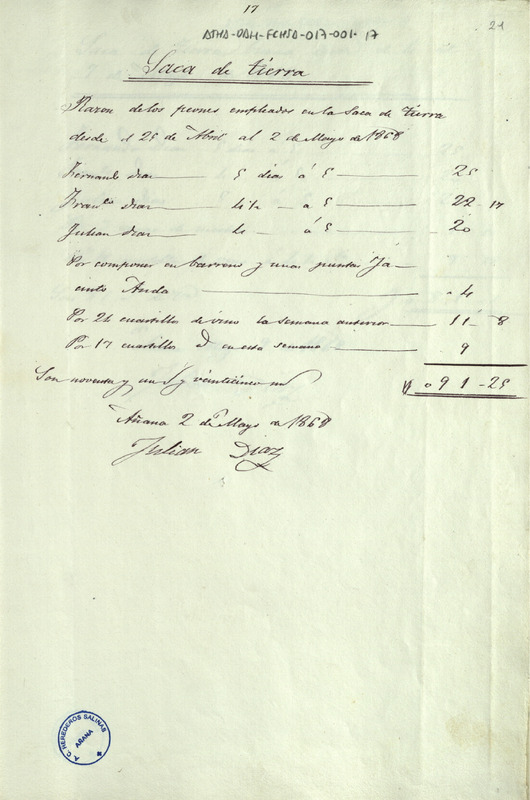 17
21
ATHA-DAH-FCHSA-017-001-17
Saca de tierra
Razon de los peones empleados en la Saca de tierra
desde el 25 de Abril al 2 de Mayo de 1868
Fernando Diaz 5 dias á 5 25
Franco Diaz á 5 22 17
Julian Diaz á 5 20
Por componer un barreno y unas puntas Já-
cinto Anda 4
Por 24 cuartillos de vino la semana anterior 11-8
Por 17 cuartillos en esta semana 9
Son noventa y un y veinticinco 91-25
Añana 2 de Mayo de 1868
Julian Diaz
A.C. HEREDEROS SALINAS
AÑANA